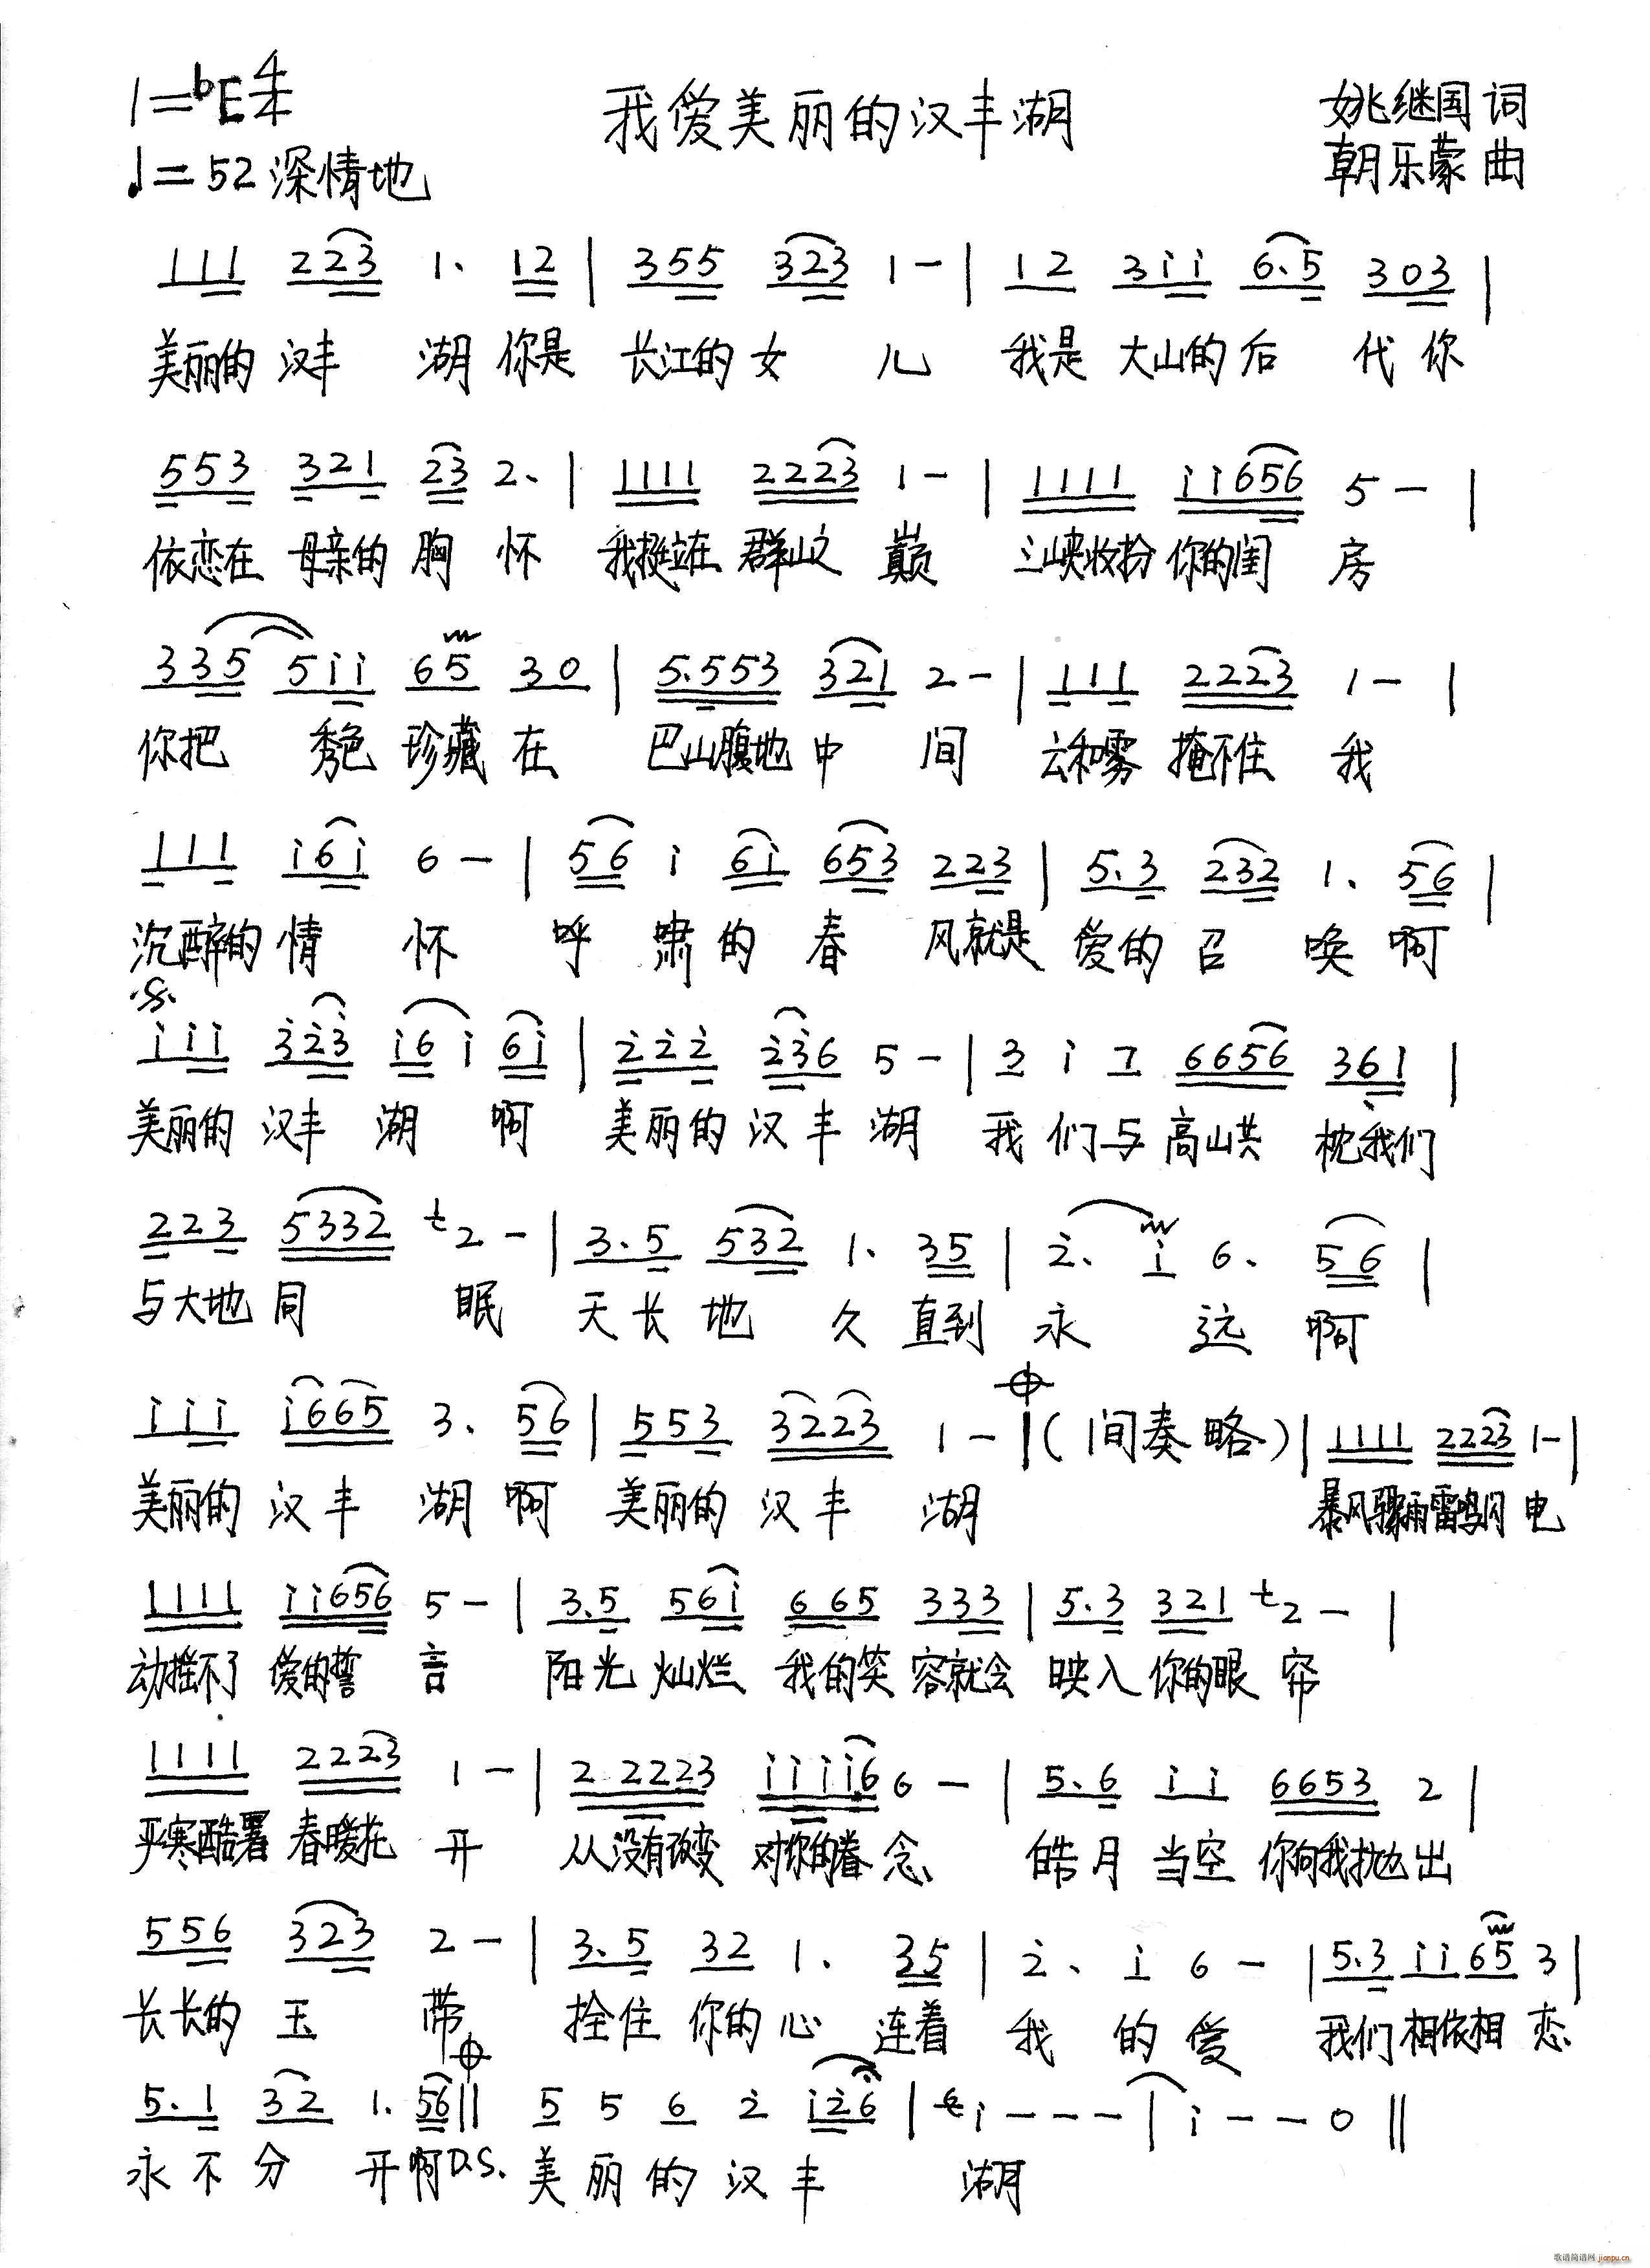 1=ᵇE 4/4
我爱美丽的汉丰湖
姚继国 词
♩=52 深情地
朝乐蒙 曲
111 223 1. 12 | 355 323 1 - | 12 3ii 6.5 303 |
美丽的 汉丰 湖 你是 长江的 女 儿 我是 大山的 后 代 你
553 321 23 2. | 1111 2223 1 - | 1111 ii656 5 - |
依恋在 母亲的 胸 怀 我挺立在 群山之 巅 三峡收扮 你的闺 房
335 5ii 65 30 | 5.553 321 2 - | 111 2223 1 - |
你把 秀色 珍藏 在 巴山腹地 中 间 云和雾 掩不住 我
111 i6i 6 - | 56 i 6i 653 223 | 5.3 232 1. 56 |
沉醉的 情 怀 呼 啸 的 春 风就是 爱的 召 唤 啊
iii 323 i6 i 6i | 222 236 5 - | 3 i 7 6656 361 |
美丽的 汉丰 湖 啊 美丽的 汉 丰 湖 我 们 与 高山共 枕我们
223 5332 2 - | 3.5 532 1. 35 | 2. i 6. 56 |
与大地 同 眠 天长 地 久 直到 永 远 啊
iii i665 3. 56 | 553 3223 1 - | (间奏略) | 1111 2223 1 - |
美丽的 汉 丰 湖 啊 美丽的 汉 丰 湖 暴风骤雨雷鸣闪 电
1111 ii656 5 - | 3.5 56i 665 333 | 5.3 321 2 - |
动摇不了 爱的誓 言 阳光 灿烂 我的笑 容就会 映入 你的眼 帘
1111 2223 1 - | 2 2223 iiii6 6 - | 5.6 ii 6653 2 |
严寒酷署 春暖花 开 从没有改变 对你的眷 念 皓月 当空 你向我抛 出
556 323 2 - | 3.5 32 1. 35 | 2. i 6 - | 5.3 ii 65 3 |
长长的 玉 带 拴住 你的 心 连着 我 的 爱 我们 相依相 恋
5.1 32 1. 56 || 5 5 6 2 i26 | i - - - | i - - 0 ||
永不 分 开 啊 D.S. 美 丽 的 汉 丰 湖
歌谱简谱网 jianpu.cn